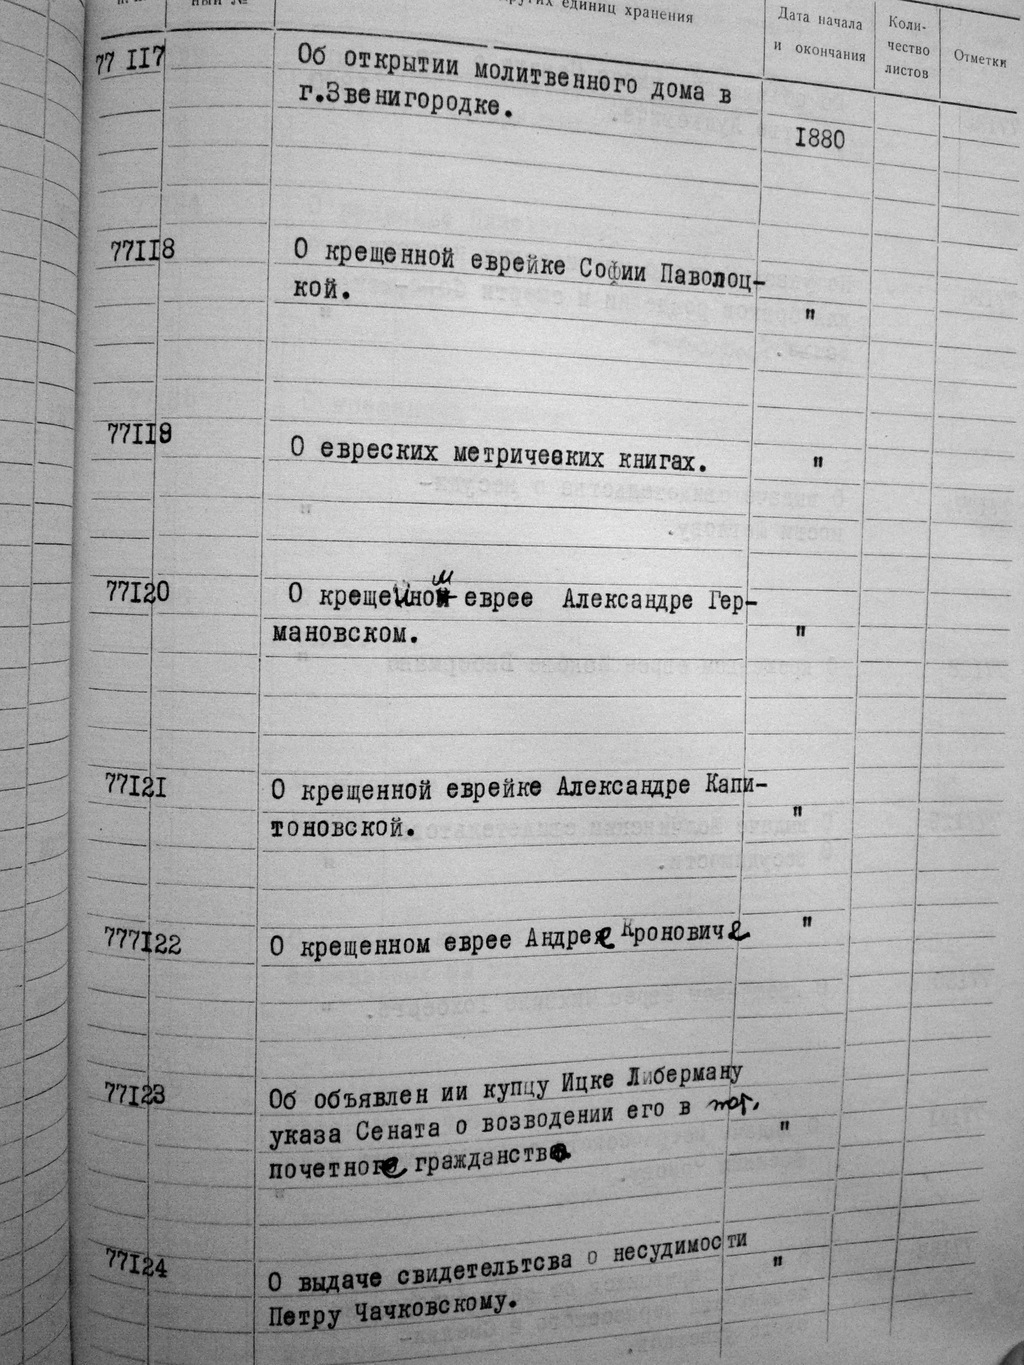 ный №
других единиц хранения
Дата начала
и окончания
Коли-
чество
листов
Отметки
77 II7
Об открытии молитвенного дома в
г.Звенигородке.
I880
77II8
О крещенной еврейке Софии Паволоц-
кой.
"
77II9
О евреских метричевких книгах.
"
77I20
О крещенном еврее Александре Гер-
мановском.
"
77I2I
О крещенной еврейке Александре Капи-
тоновской.
"
777I22
О крещенном еврее Андрее Кроновиче
"
77I23
Об объявлен ии купцу Ицке Либерману
указа Сената о возводении его в пот.
почетное гражданство
"
77I24
О выдаче свидетельтсва о несудимости
Петру Чачковскому.
"